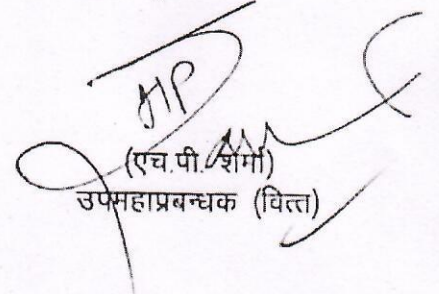 HP
(एच.पी. शर्मा)
उपमहाप्रबन्धक (वित्त)